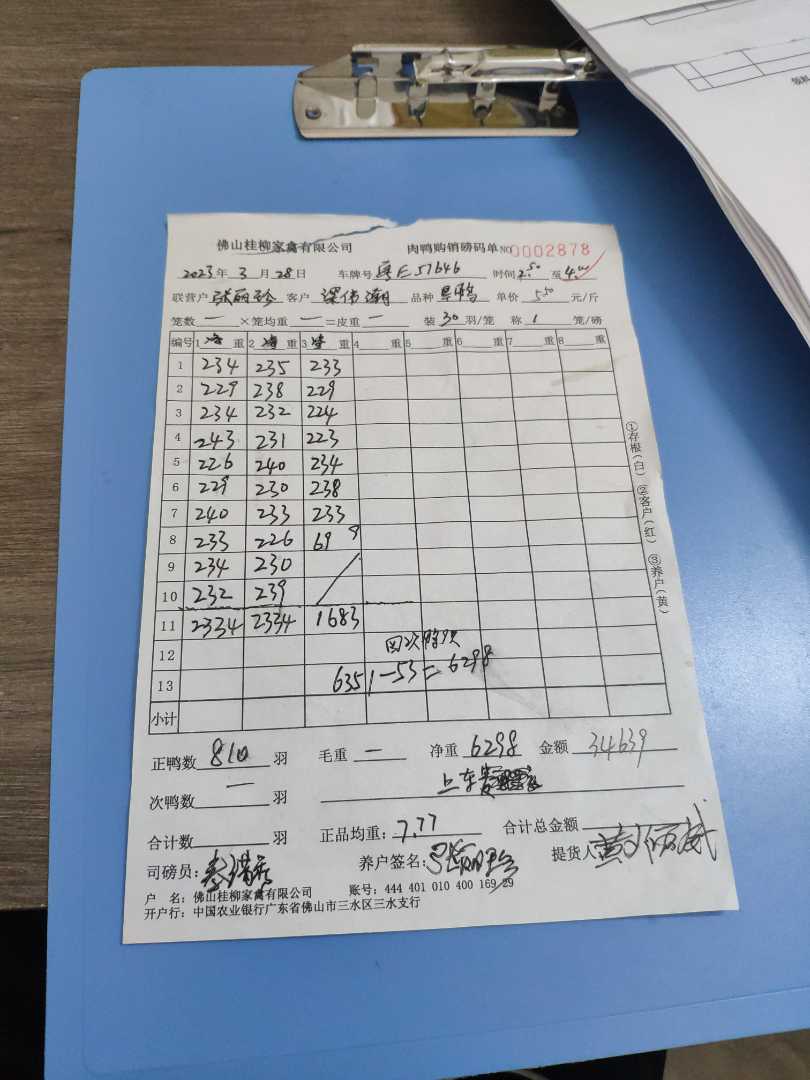 佛山桂柳家禽有限公司 肉鸭购销磅码单 NO 0002878
2023年 3月 28日 车牌号 粤E57646 时间 2.50 至 4.00
联营户 张丽珍 客户 梁伟潮 品种 旦鸭 单价 5.50 元/斤
笼数 一 ×笼均重 一 =皮重 一 装 30 羽/笼 称 1 笼/磅
编号 1 重 2 重 3 重 4 重 5 重 6 重 7 重 8 重
1 234 235 233
2 229 238 229
3 234 232 224
4 243 231 223
5 226 240 234
6 229 230 238
7 240 233 233
8 233 226 69 9
9 234 230 /
10 232 239
11 2334 2334 1683
12
13 6351-53=6298
小计
正鸭数 810 羽 毛重 一 净重 6298 金额 34639
次鸭数 一 羽 上车
合计数 羽 正品均重: 7.77 合计总金额
司磅员: 养户签名: 提货人
户 名: 佛山桂柳家禽有限公司 账号: 444 401 010 400 169 29
开户行: 中国农业银行广东省佛山市三水区三水支行
①存根(白) ②客户(红) ③养户(黄)